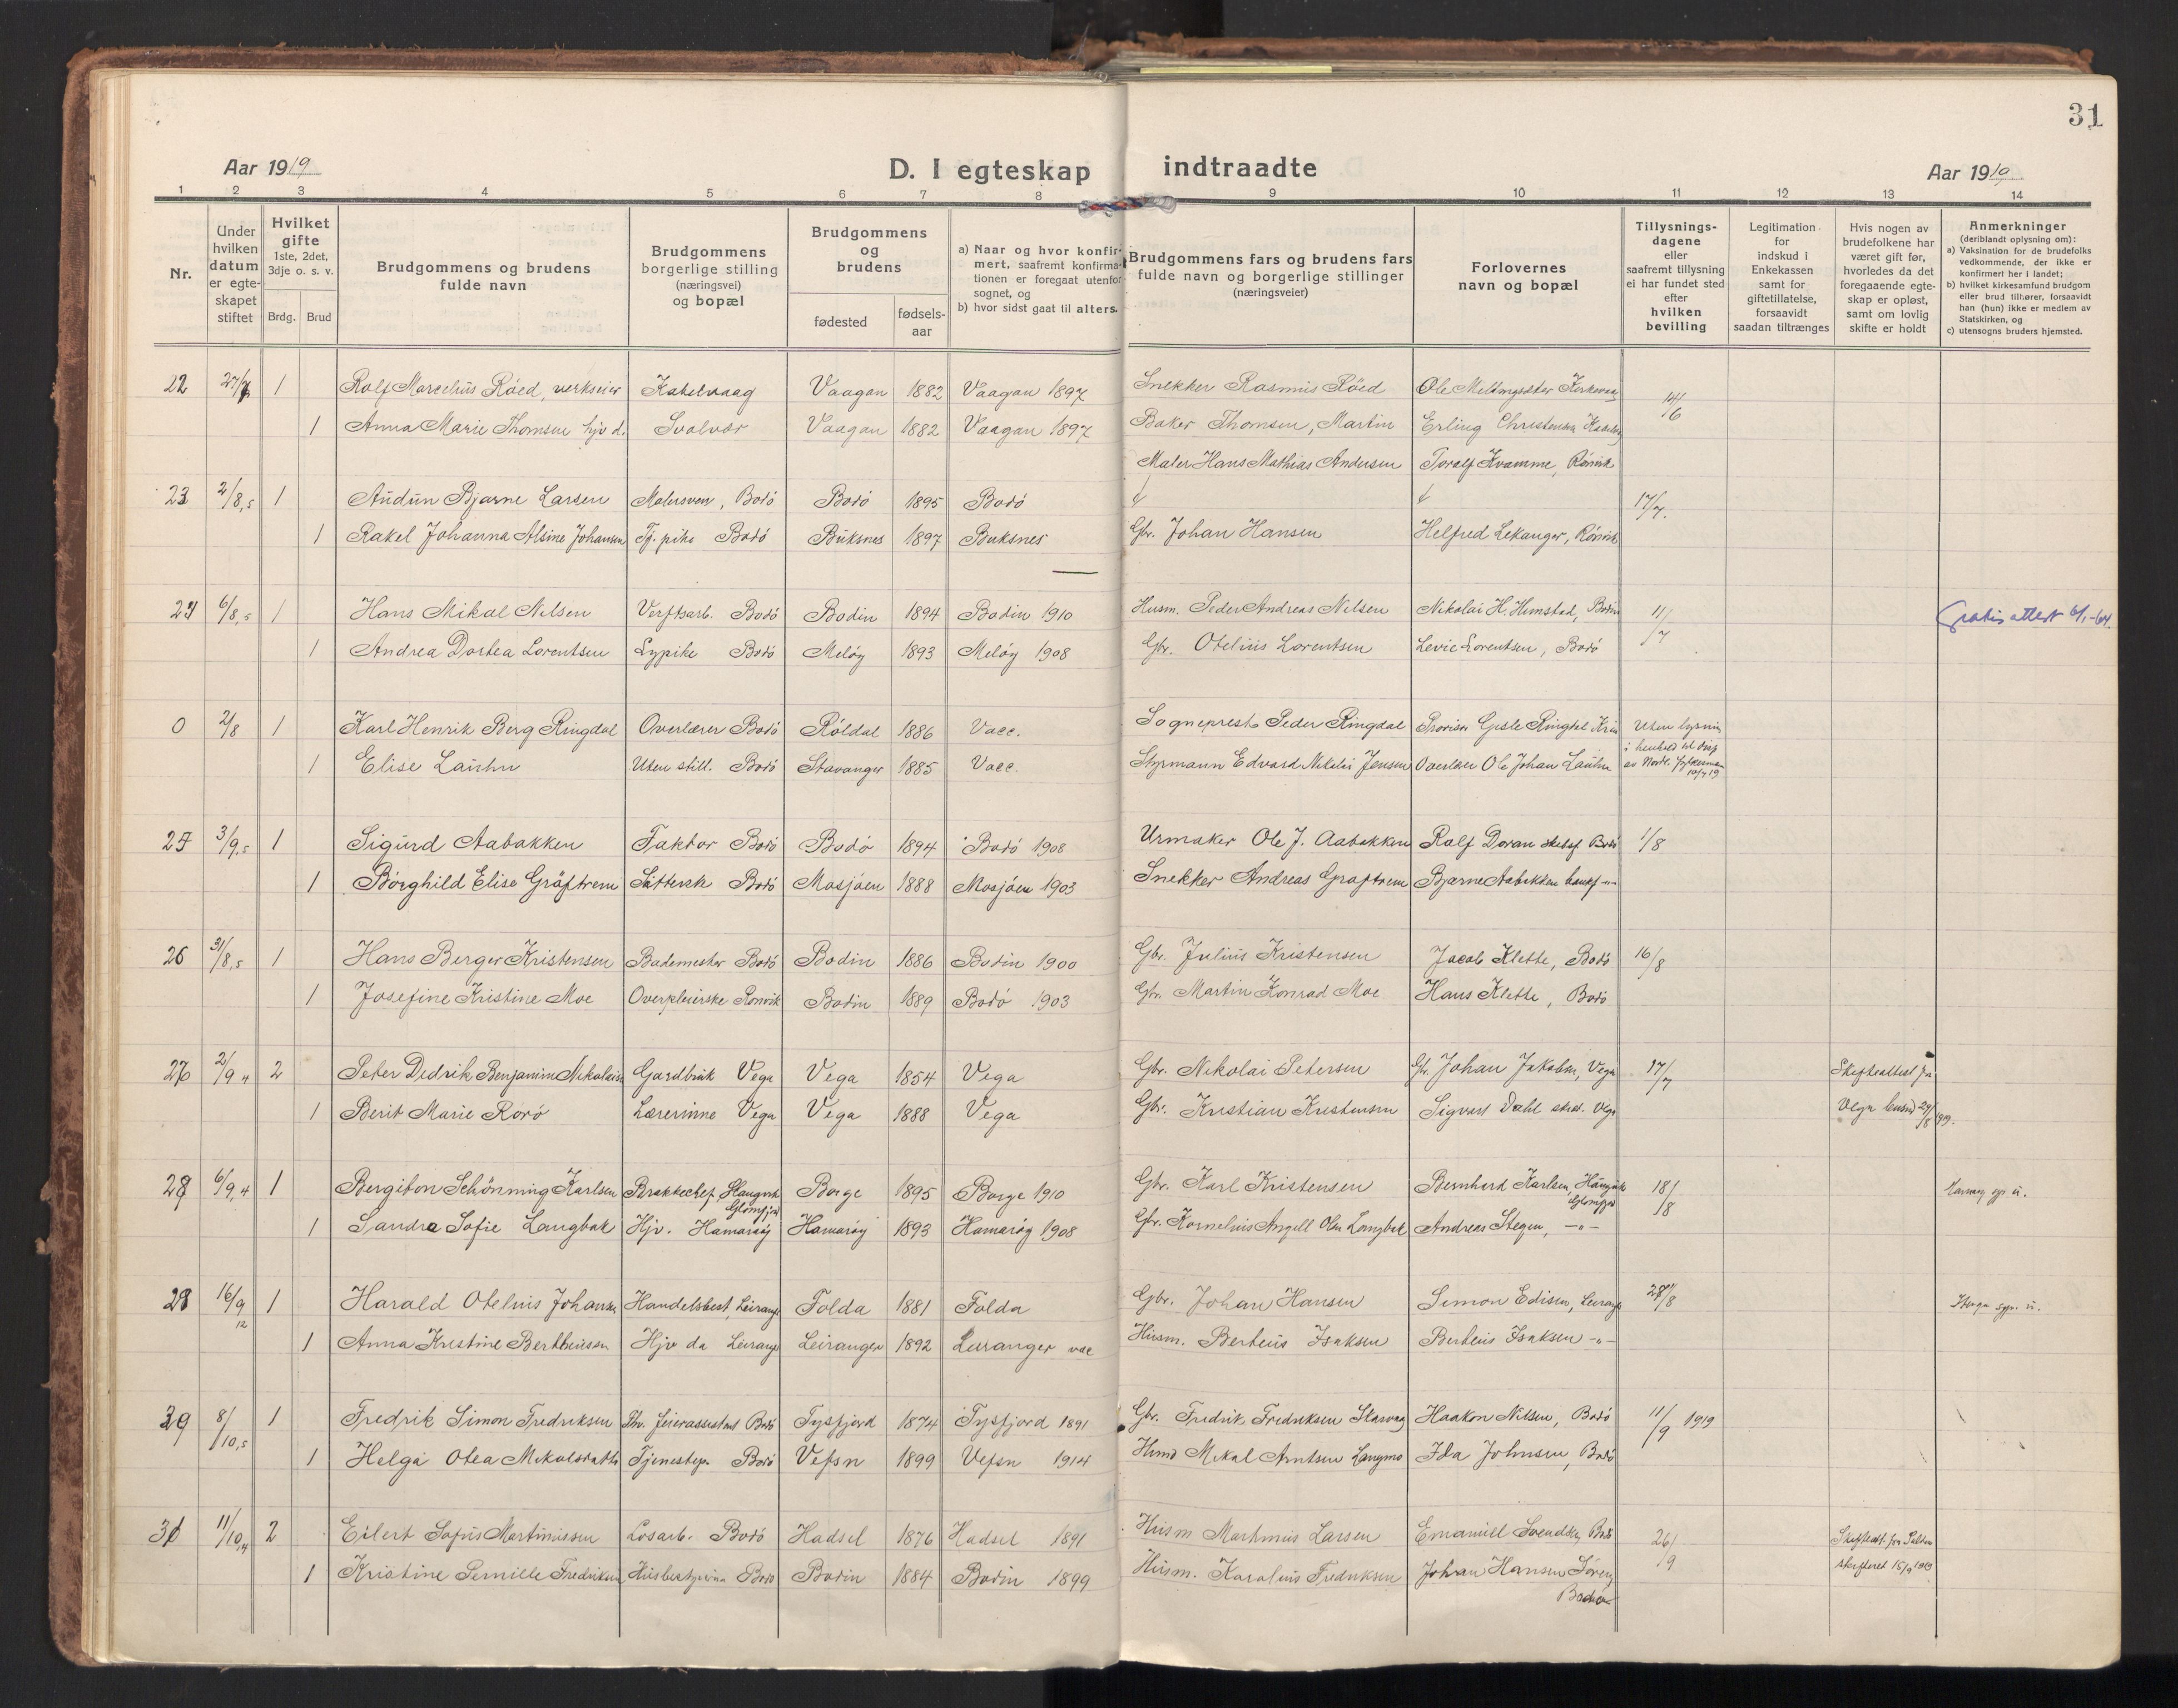 31
Aar 1919 D. I egteskap indtraadte Aar 1919
1 2 3 4 5 6 7 8 9 10 11 12 13 14
Nr.
Under hvilken datum er egteskapet stiftet
Hvilket gifte 1ste, 2det, 3dje o. s. v.
Brdg. Brud
Brudgommens og brudens fulde navn
Brudgommens borgerlige stilling (næringsvei) og bopæl
Brudgommens og brudens
fødested fødsels-aar
a) Naar og hvor konfirmert, saafremt konfirmationen er foregaat utenfor sognet, og
b) hvor sidst gaat til alters.
Brudgommens fars og brudens fars fulde navn og borgerlige stillinger (næringsveier)
Forlovernes navn og bopæl
Tillysnings-dagene eller saafremt tillysning ei har fundet sted efter hvilken bevilling
Legitimation for indskud i Enkekassen samt for giftetillatelse, forsaavidt saadan tiltrænges
Hvis nogen av brudefolkene har været gift før, hvorledes da det foregaaende egteskap er opløst, samt om lovlig skifte er holdt
Anmerkninger (deriblandt oplysning om):
a) Vaksination for de brudefolks vedkommende, der ikke er konfirmert her i landet;
b) hvilket kirkesamfund brudgom eller brud tilhører, forsaavidt han (hun) ikke er medlem av Statskirken, og
c) utensogns bruders hjemsted.
22 27/7 1 Rolf Marcelius Röed, verkseier Kabelvaag Vaagan 1882 Vaagan 1897 Snekker Rasmus Röed Ole 14/6
1 Anna Marie Thomsen hjv d. Svolvær Vaagan 1882 Vaagan 1897 Baker Thomsen, Martin Erling Christensen
Maler Hans Mathias Andersen Toralf Kvamme, Rönvik
23 2/8,5 1 Audun Bjarne Larsen Malersven, Bodö Bodö 1895 Bodö 17/7.
1 Rakel Johanna Alsine Johansen Tj. pike Bodö Buksnes 1897 Buksnes Gbr. Johan Hansen Helfred Lekanger, Rönvik
24 6/8,5 1 Hans Mikal Nilsen Verftsarb. Bodö Bodin 1894 Bodin 1910 Husm. Peder Andreas Nilsen Nikolai H. Himstad, Bodin 11/7 Gratis attest 6/1-64.
1 Andrea Dortea Lorentsen Sypike Bodö Melöy 1893 Melöy 1908 Gbr. Otelius Lorentsen Levic Lorentsen, Bodö
0 2/8 1 Karl Henrik Berg Ringdal Overlærer Bodö Röldal 1886 Vacc. Sogneprest Peder Ringdal Provisor Gisle Ringdal Kria Uten lysning
i henhold til disp
1 Elise Lauhn Uten still. Bodö Stavanger 1885 Vacc. Styrmann Edvard Nikolai Jensen Overlærer Ole Johan Lauhn av Nordl. fylkesman
10/7 19
25 3/9,5 1 Sigurd Aabakken Faktor Bodö Bodö 1894 Bodö 1908 Urmaker Ole J. Aabakken Rolf Doran Bodö 1/8
1 Borghild Elise Gräftrem Sätterske Bodö Mosjöen 1888 Mosjöen 1903 Snekker Andreas Graftrem Bjarne Aabakken bankf -"-
26 31/8,5 1 Hans Berger Kristensen Bademester Bodö Bodin 1886 Bodin 1900 Gbr. Julius Kristensen Jacob Klette, Bodö 16/8
1 Josefine Kristine Moe Overpleierske Rönvik Bodin 1889 Bodö 1903 Gbr. Martin Konrad Moe Hans Klette, Bodö
27 2/9 4 2 Peter Didrik Benjamin Nikolaisen Gardbruk Vega Vega 1854 Vega Gbr. Nikolai Petersen Gbr. Johan Jakobsen, Vega 17/7 Skifteattest fra
1 Berit Marie Rorö Lærerinne Vega Vega 1888 Vega Gbr. Kristian Kristensen Sigvart Dahl Vega Vega 29/8 1919.
28 6/9,4 1 Bergiton Schönning Karlsen Brakkechef, Haugvik Glomfjord Borge 1895 Borge 1910 Gbr. Karl Kristensen Bernhard Karlsen, Haugvik Glomfjord 18/8
1 Sandra Sofie Langbak Hjv. Hamaröy Hamaröy 1893 Hamaröy 1908 Gbr. Kornelius Angell Olsen Langbak Andreas Stegen, -"-
29 16/9 12 1 Harald Otelius Johansen Handelsbest. Leiranger Folda 1881 Folda Gbr. Johan Hansen Simon Edisen, Leiranger 28/8
1 Anna Kristine Bertheusen Hjv da Leiranger Leiranger 1892 Leiranger vac Husm. Berteus Isaksen Berteus Isaksen -"-
30 8/10,5 1 Fredrik Simon Fredriksen Feierassistent Bodö Tysfjord 1874 Tysfjord 1891 Gbr. Fredrik Fredriksen Haakon Nilsen, Bodö 11/9 1919
1 Helga Otea Mikalsdatter Tjenestep. Bodö Vefsn 1899 Vefsn 1914 Husm Mikal Arntsen Langmo Ida Johnsen, Bodö
31 11/10,4 2 Eilert Sofus Martinussen Losarb. Bodö Hadsel 1876 Hadsel 1891 Husm Martinus Larsen Emanuel Svendsen, Bodö 26/9
1 Kristine Pernille Fredriksen Husbestyrerinne Bodö Bodin 1884 Bodin 1899 Husm. Karolius Fredriksen Johan Hansen
Bodö